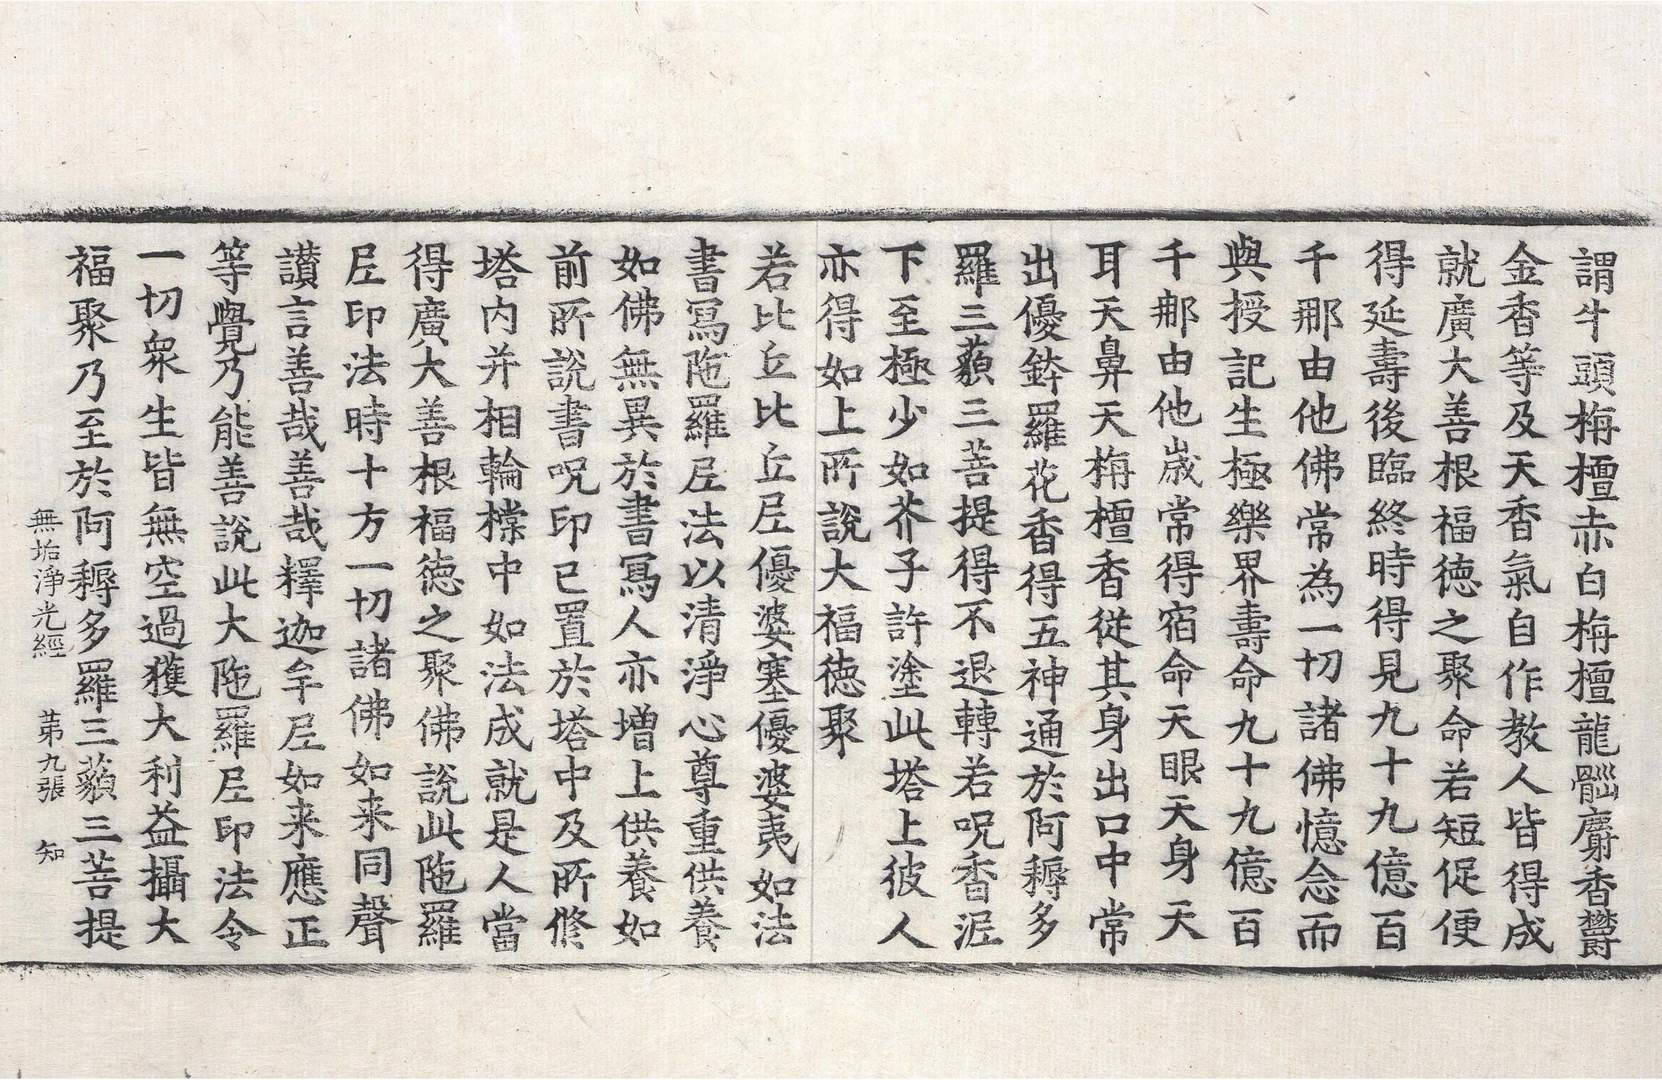 謂牛頭栴檀赤白栴檀龍𦠆麝香欝
金香等及天香氣自作教人皆得成
就廣大善根福徳之聚命若短促便
得延壽後臨終時得見九十九億百
千那由他佛常為一切諸佛憶念而
與授記生極樂界壽命九十九億百
千那由他歳常得宿命天眼天身天
耳天鼻天栴檀香從其身出口中常
出優鉢羅花香得五神通於阿耨多
羅三藐三菩提得不退轉若呪香泥
下至極少如芥子許塗此塔上彼人
亦得如上所說大福徳聚
若比丘比丘尼優婆塞優婆夷如法
書寫陁羅尼法以清淨心尊重供養
如佛無異於書寫人亦增上供養如
前所說書呪印已置於塔中及所修
塔内并相輪橖中如法成就是人當
得廣大善根福徳之聚佛說此陁羅
尼印法時十方一切諸佛如来同聲
讃言善哉善哉釋迦牟尼如来應正
等覺乃能善說此大陁羅尼印法令
一切衆生皆無空過獲大利益攝大
福聚乃至於阿耨多羅三藐三菩提
無垢淨光經 第九張 知